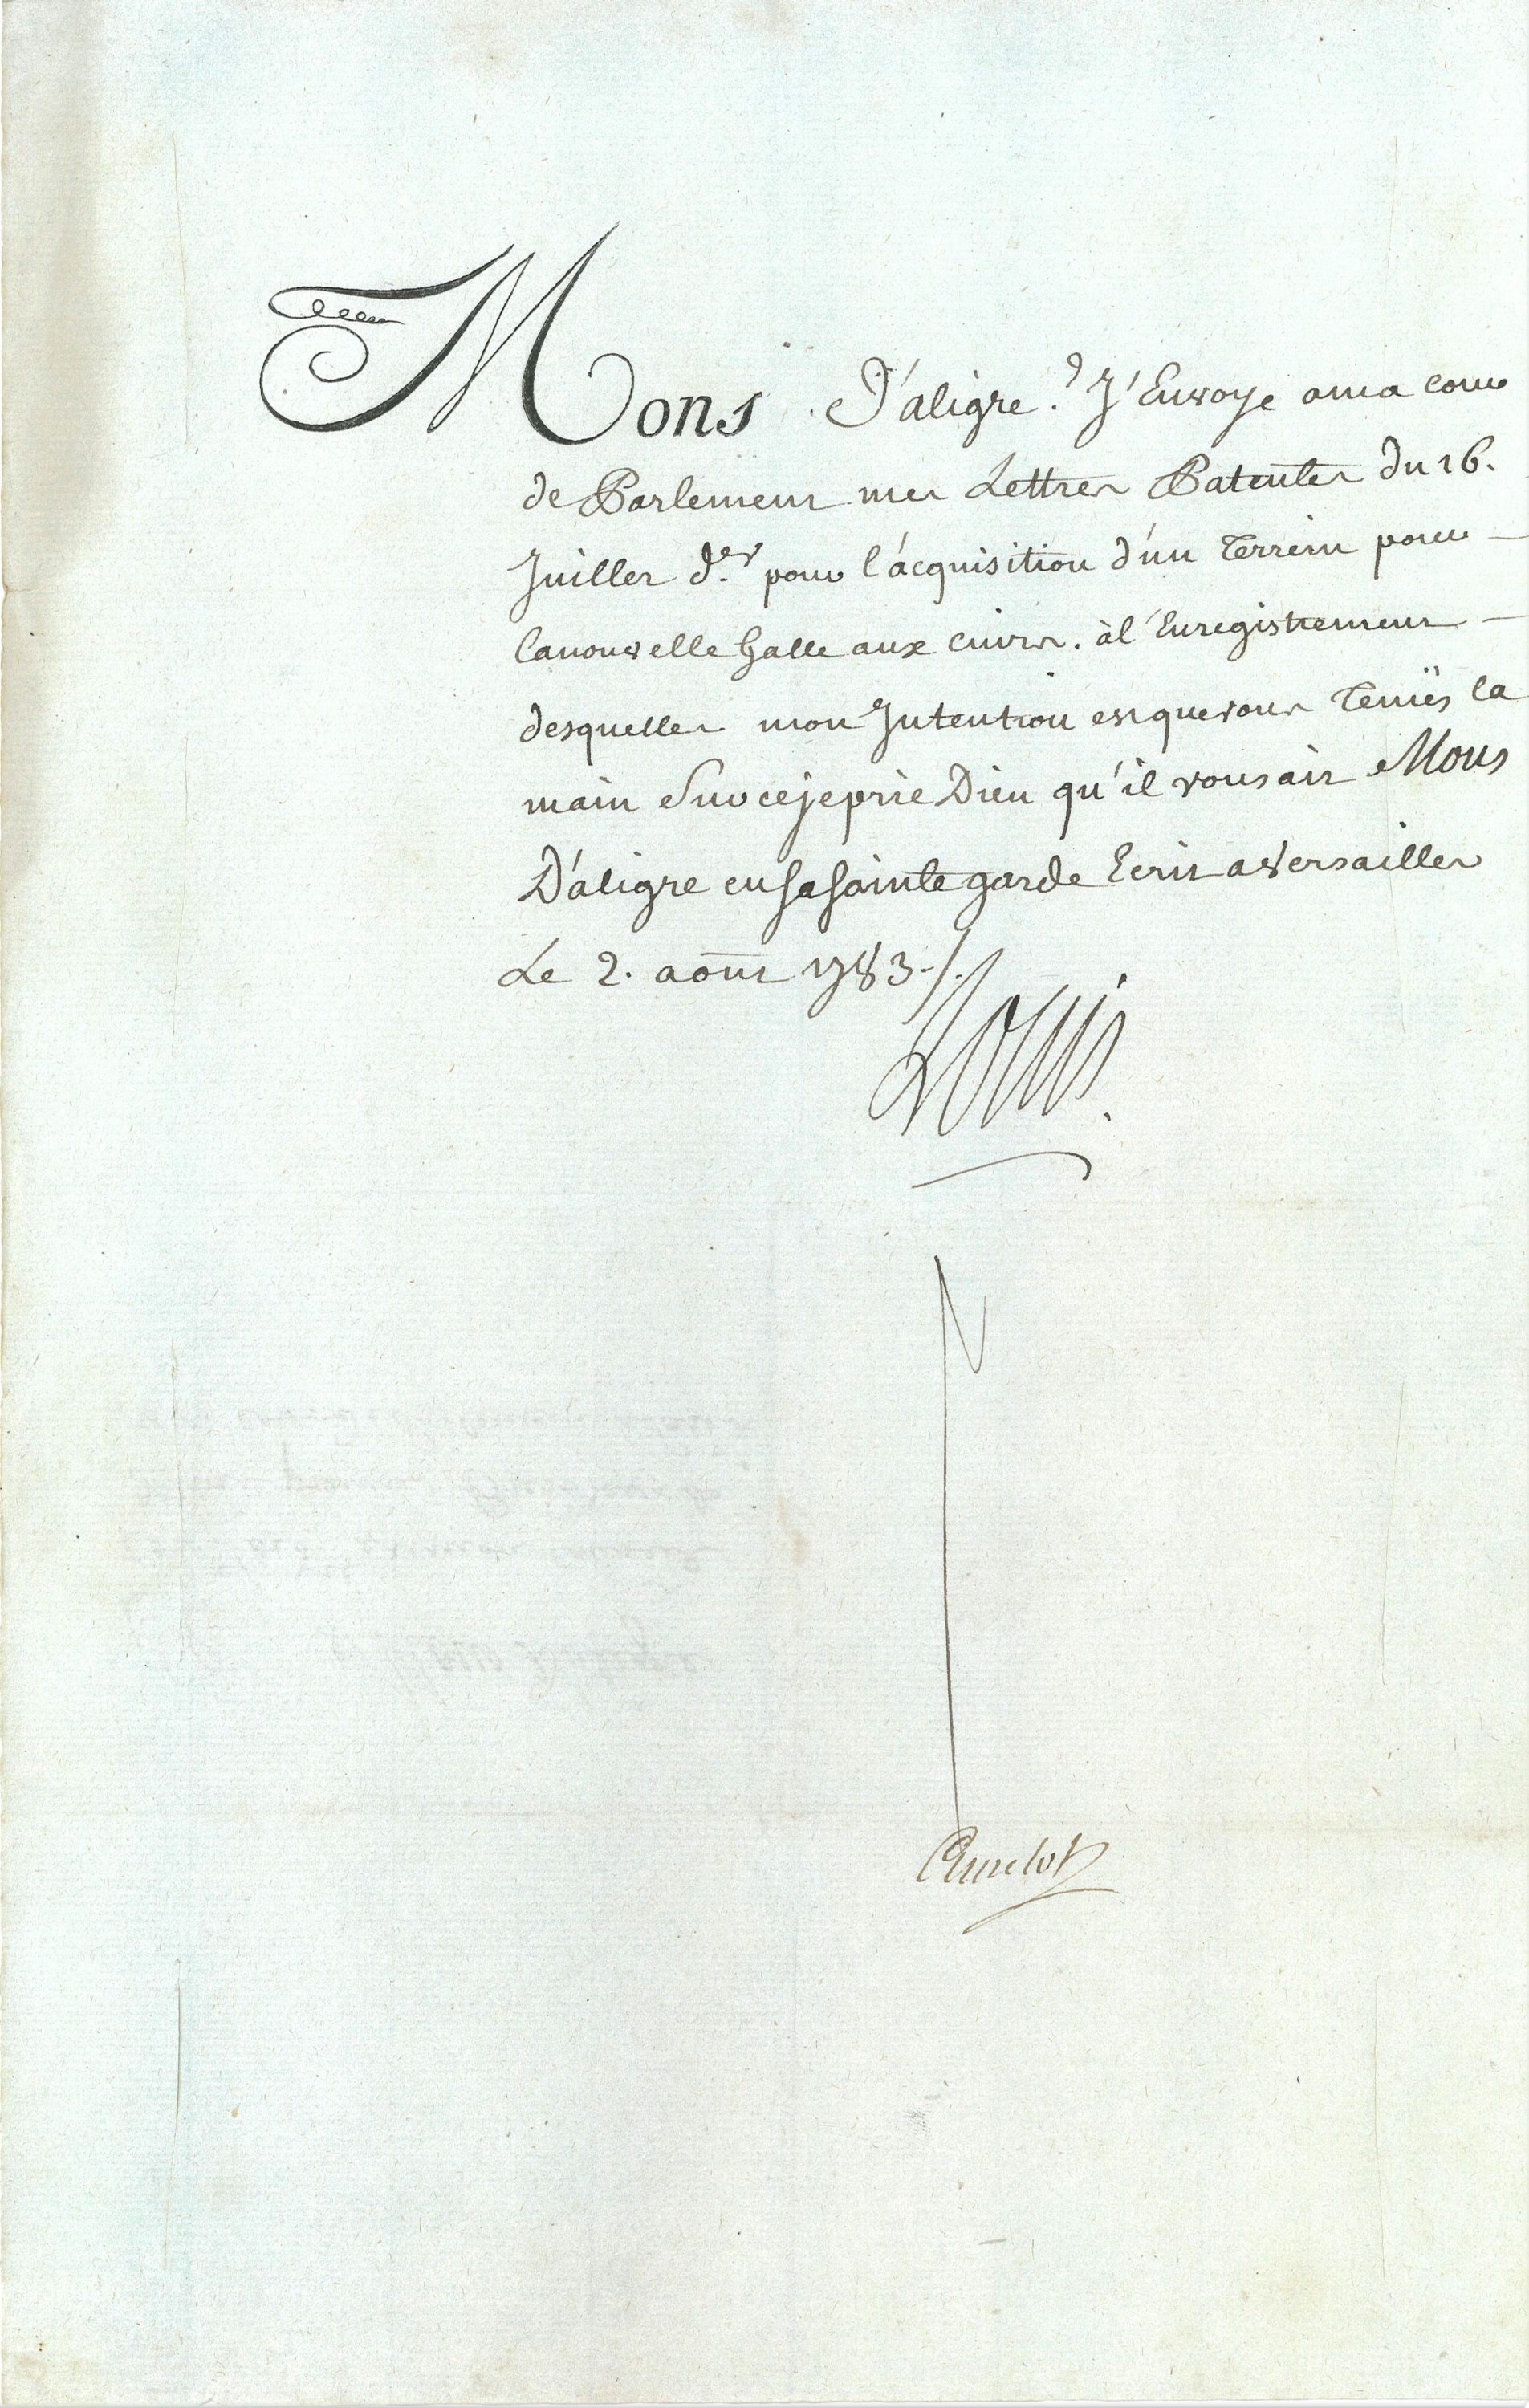 Mons D'aligre. J'Envoye a ma cour
de Parlement mes Lettres Patentes du 16.
Juillet d.er pour l'acquisition d'un Terrein pour
la nouvelle halle aux cuirs. à l'Enregistrement
desquelles mon Intention est que vous Teniés la
main Sur ce je prie Dieu qu'il vous ait Mons
D'aligre en sa sainte garde Ecrit a Versailles
Le 2. aout 1783./.
Louis
Amelot